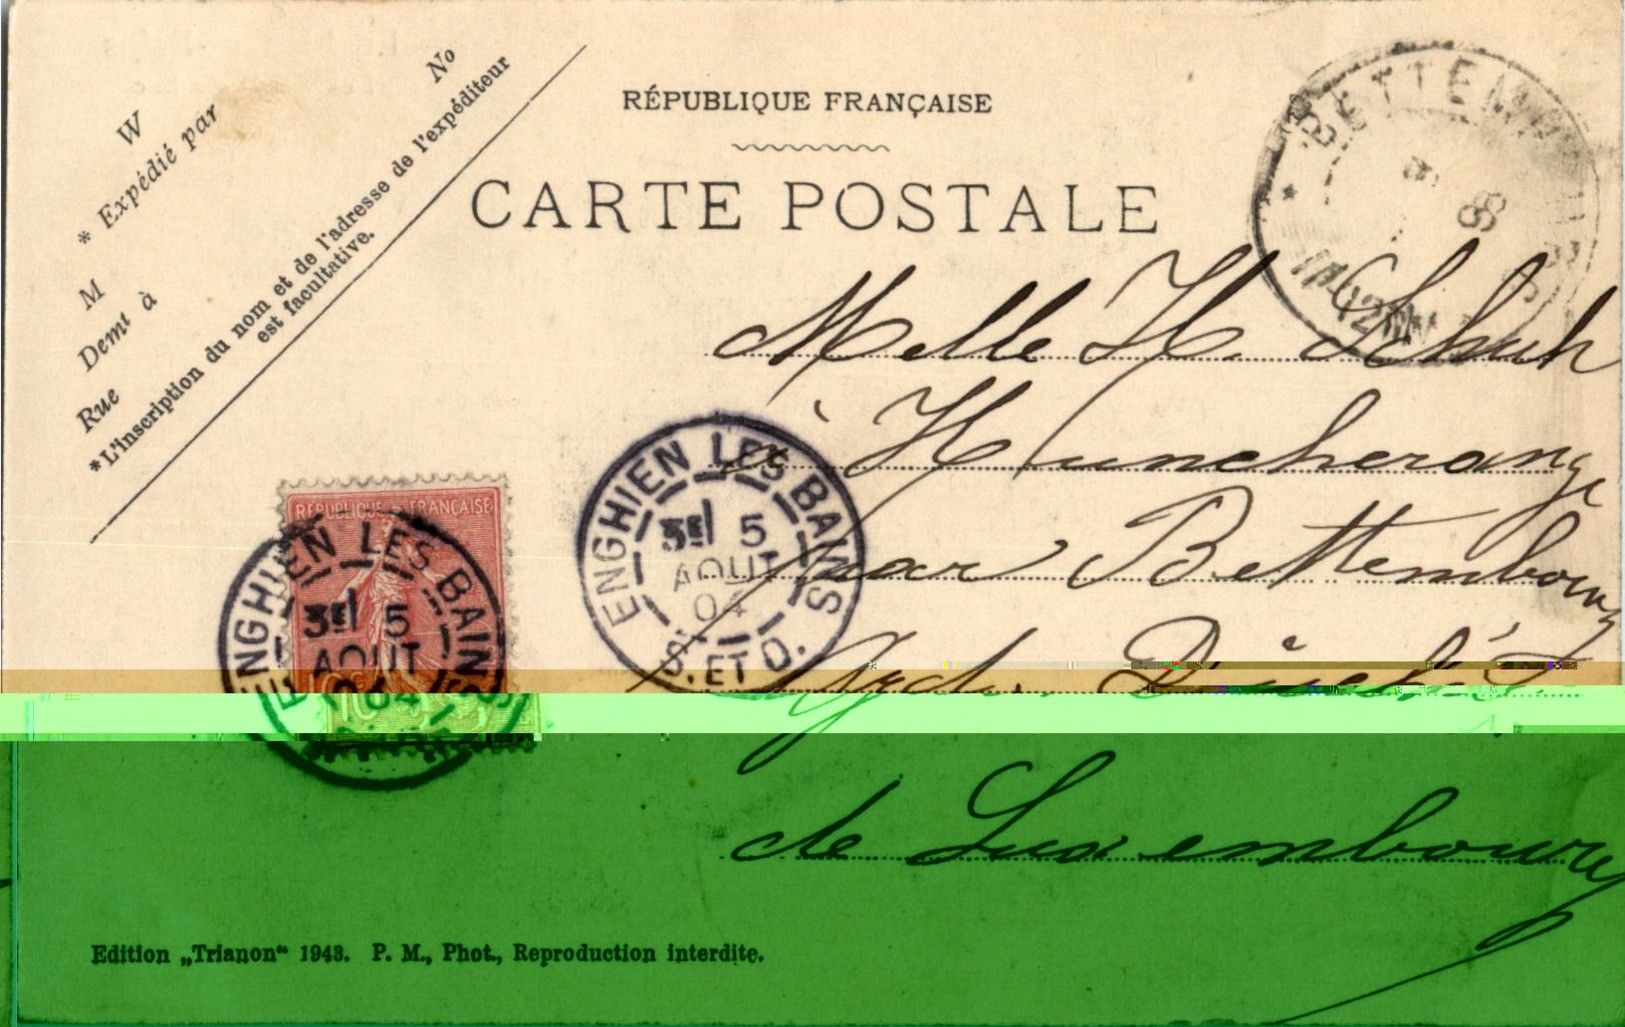 No
W
* Expédié par
M
Demt à
Rue
*L'inscription du nom et de l'adresse de l'expéditeur
est facultative.
RÉPUBLIQUE FRANÇAISE
CARTE POSTALE
Melle H. Schuh
à Huncherange
par Bettembourg
Gd. Duché
de Luxembourg
RÉPUBLIQUE FRANÇAISE
ENGHIEN LES BAINS
3E 5
AOUT
04
ENGHIEN LES BAINS
3E 5
AOUT
04
S. ET O.
Edition „Trianon“ 1943. P. M., Phot., Reproduction interdite.